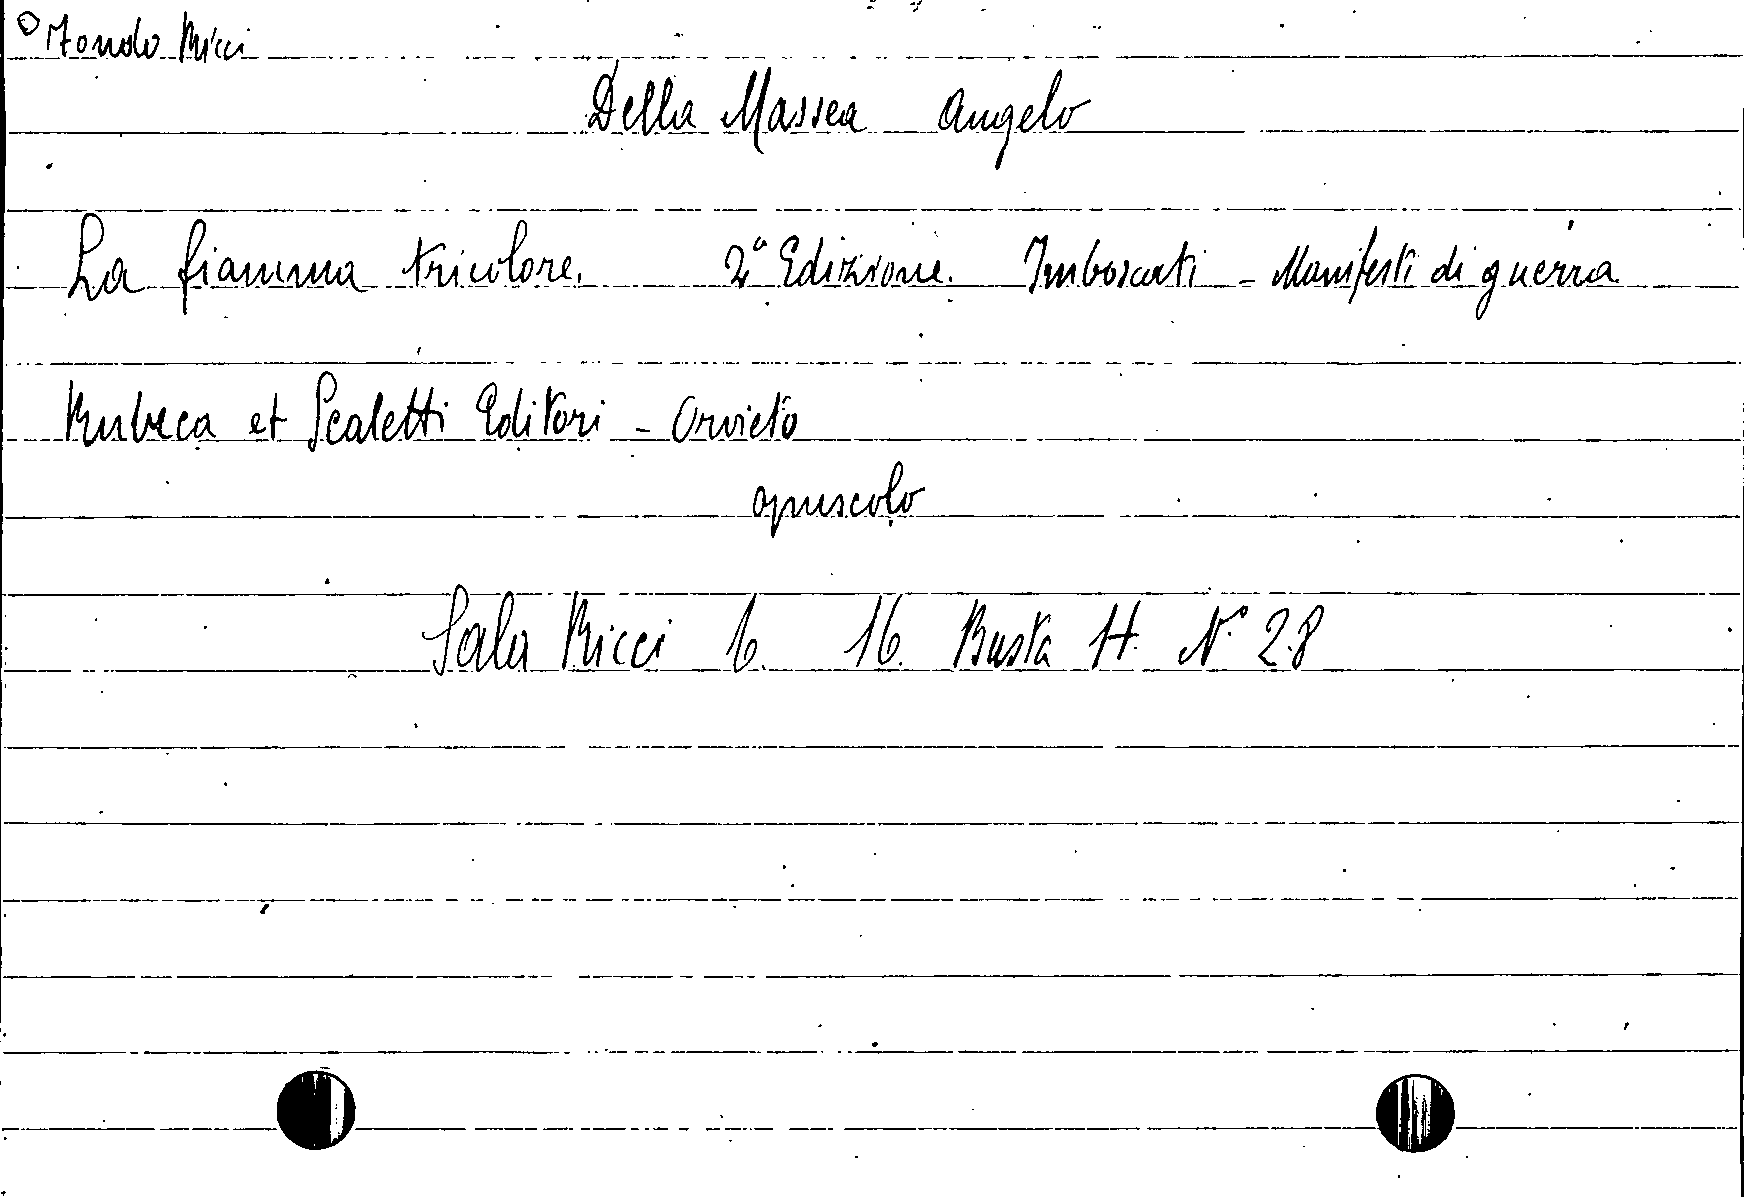 Fondo Ricci
Della Massea Angelo
La fiamma tricolore. 2ª Edizione. Imboscati - Manifesti di guerra
Rubeca et Scaletti Editori - Orvieto
opuscolo
Sala Ricci 6. 16. Busta H. N° 28